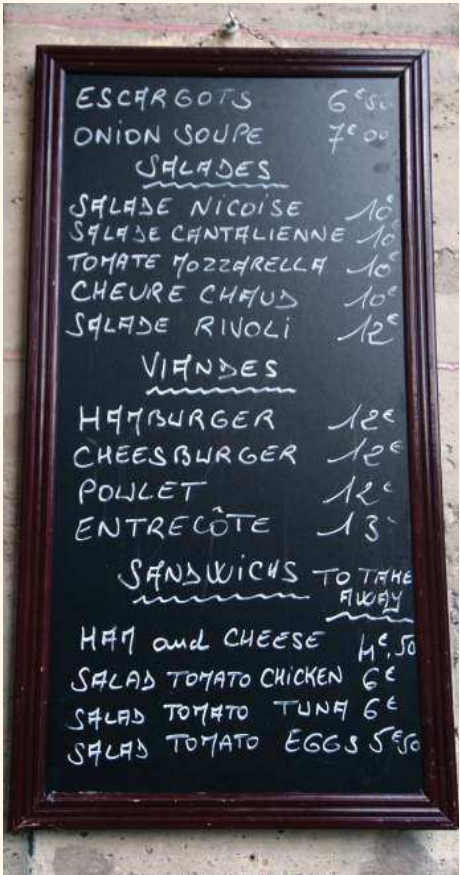 ESCARGOTS 6€50
ONION SOUPE 7€00
SALADES
SALADE NICOISE 10€
SALADE CANTALIENNE 10€
TOMATE MOZZARELLA 10€
CHEVRE CHAUD 10€
SALADE RIVOLI 12€
VIANDES
HAMBURGER 12€
CHEESBURGER 12€
POULET 12€
ENTRECÔTE 13€
SANDWICHS TO TAKE AWAY
HAM and CHEESE 4€,50
SALAD TOMATO CHICKEN 6€
SALAD TOMATO TUNA 6€
SALAD TOMATO EGGS 5€50